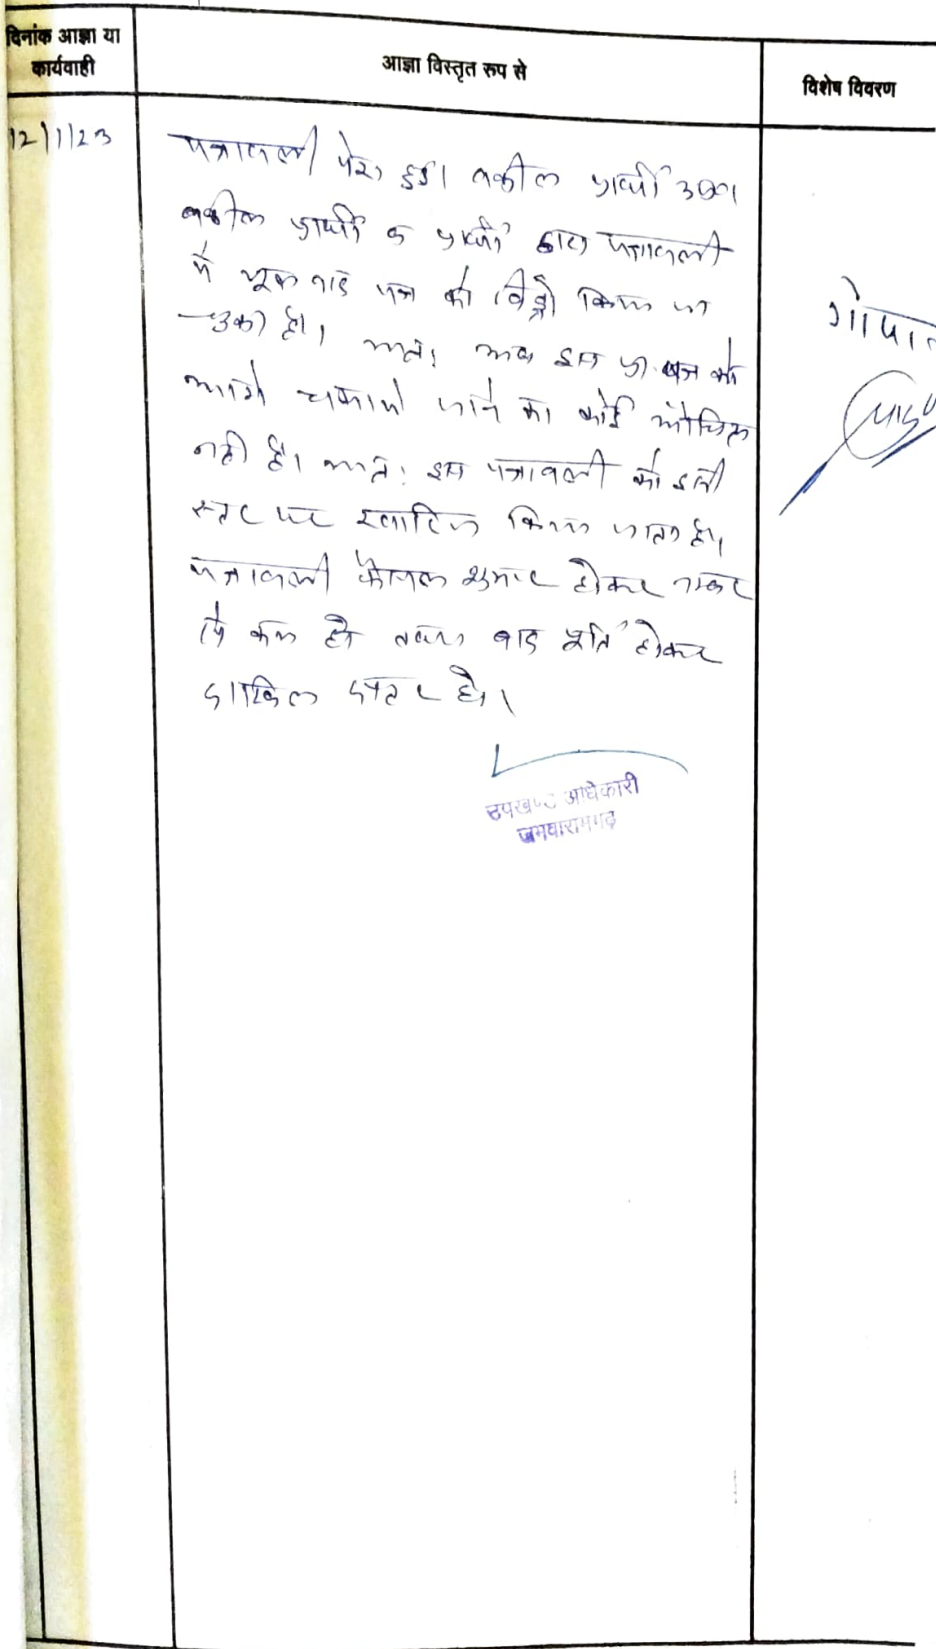 दिनांक आज्ञा या
कार्यवाही
आज्ञा विस्तृत रुप से
विशेष विवरण
12/1/23
पत्रावली पेश हुई। वकील प्रार्थी उप०।
वकील प्रार्थी व प्रार्थी द्वारा पत्रावली
में मूल वाद पत्र को विड्रो किया जा
चुका है। अतः अब इस प्रा. पत्र को
आगे चलाये जाने का कोई औचित्य
नही है। अतः इस पत्रावली को इसी
स्तर पर खारिज किया जाता है।
पत्रावली फैसल शुमार होकर नम्बर
से कम हो तकमा बाद पूर्ति होकर
दाखिल दफ्तर हो।
उपखण्ड अधिकारी
जमवारामगढ़